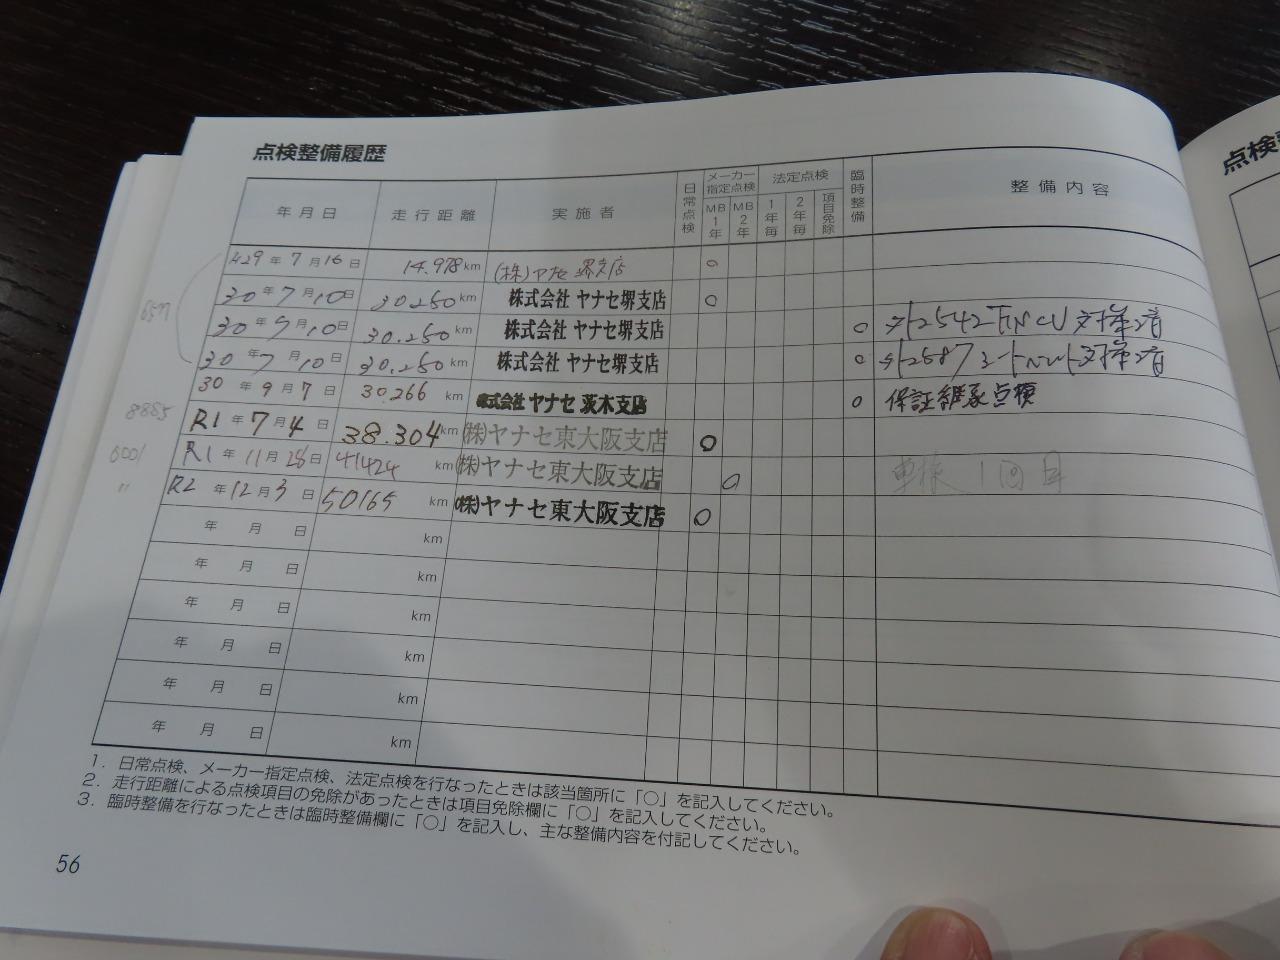 点検整備履歴
点検
年月日 走行距離 実施者 日常点検 メーカー指定点検 MB1年 MB2年 法定点検 1年毎 2年毎 項目免除 臨時整備 整備内容
H29年7月16日 14.978km (株)ヤナセ 堺支店 ○
30年7月10日 30.250km 株式会社 ヤナセ堺支店 ○
30年 月10日 30.250km 株式会社 ヤナセ堺支店 ○ 対策済
30年7月10日 30.250km 株式会社 ヤナセ堺支店 ○ 対策済
30年9月7日 30.266km 株式会社 ヤナセ 茨木支店 ○ 保証継承点検
8885
R1年7月4日 38.304km (株)ヤナセ東大阪支店 ○
6001
R1年11月28日 41424km (株)ヤナセ東大阪支店 ○ 車検1回目
〃
R2年12月3日 50165km (株)ヤナセ東大阪支店 ○
年 月 日 km
年 月 日 km
年 月 日 km
年 月 日 km
年 月 日 km
年 月 日 km
1. 日常点検、メーカー指定点検、法定点検を行なったときは該当箇所に「○」を記入してください。
2. 走行距離による点検項目の免除があったときは項目免除欄に「○」を記入してください。
3. 臨時整備を行なったときは臨時整備欄に「○」を記入し、主な整備内容を付記してください。
56